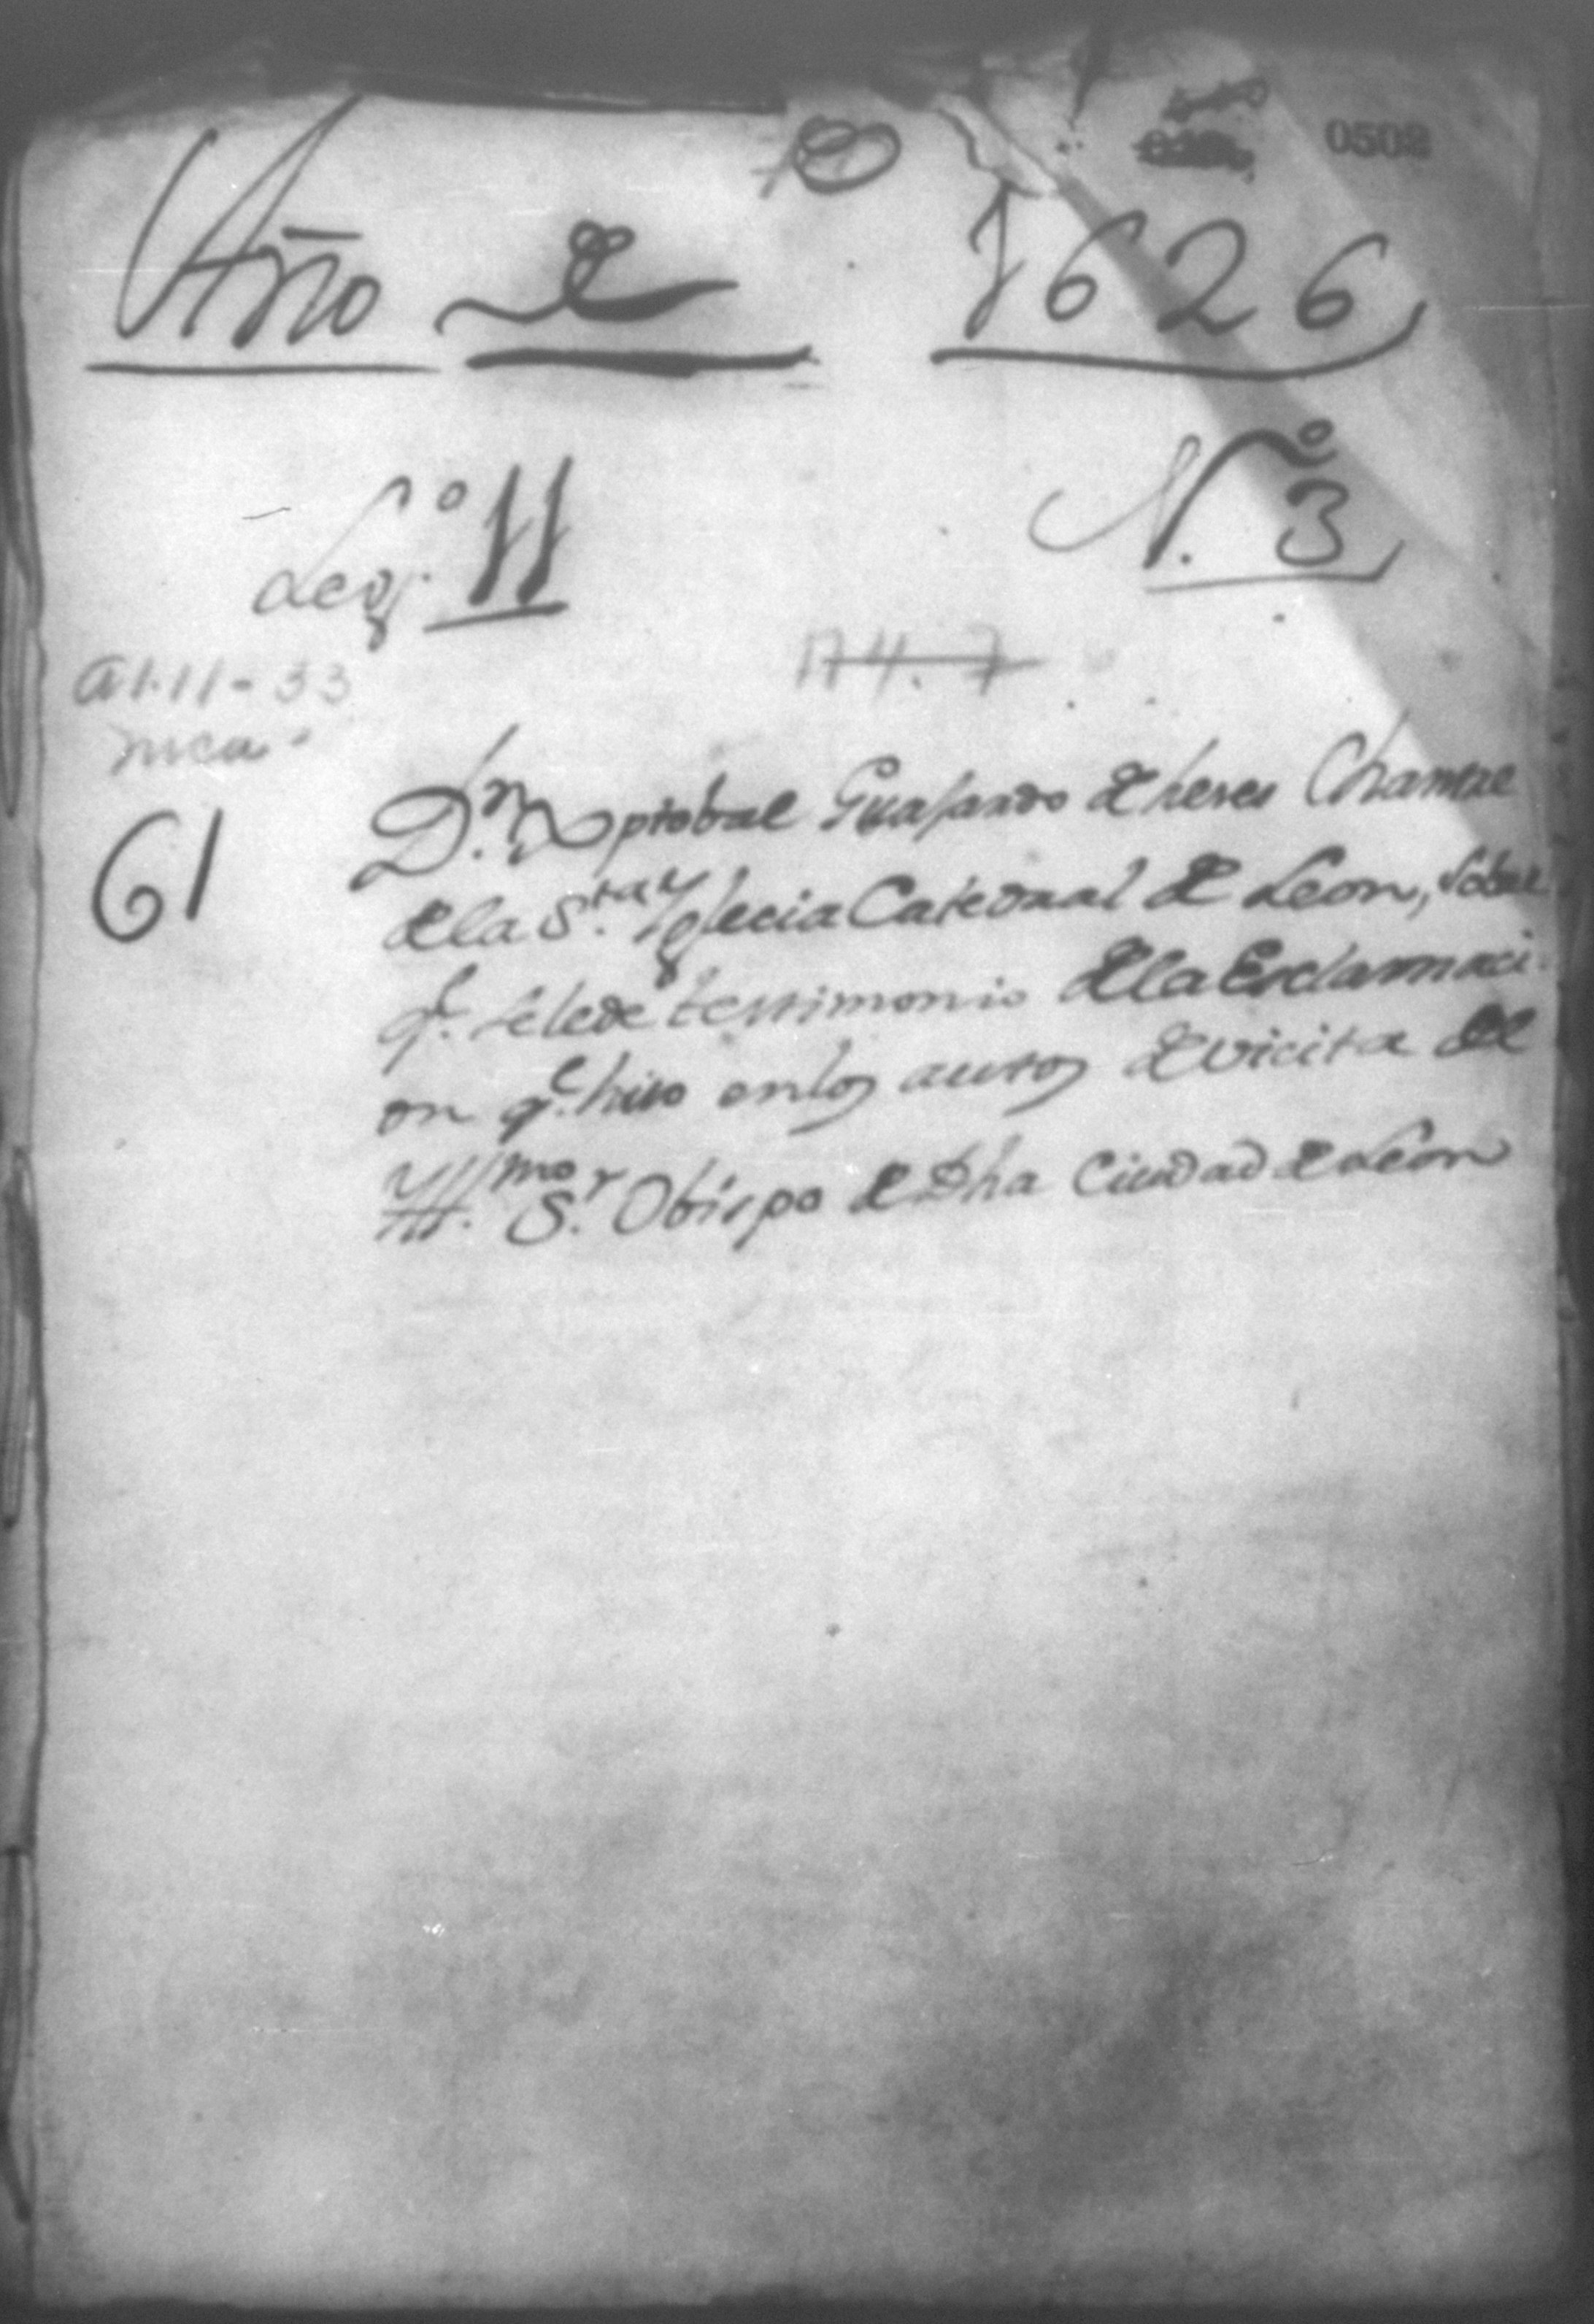 0502
Año de 1626
Leg.º 11 N.º 3
A1.11-33
174.7
Nica.
61
D.n Xptobal Guajardo de heres Chantre
de la S.ta Yglecia Catedral de Leon, sobre
q.e se le de testimonio de la Esclamaci-
on q.e hiso en los autos de vicita del
Yll.mo S.r Obispo de Dha Ciudad de Leon